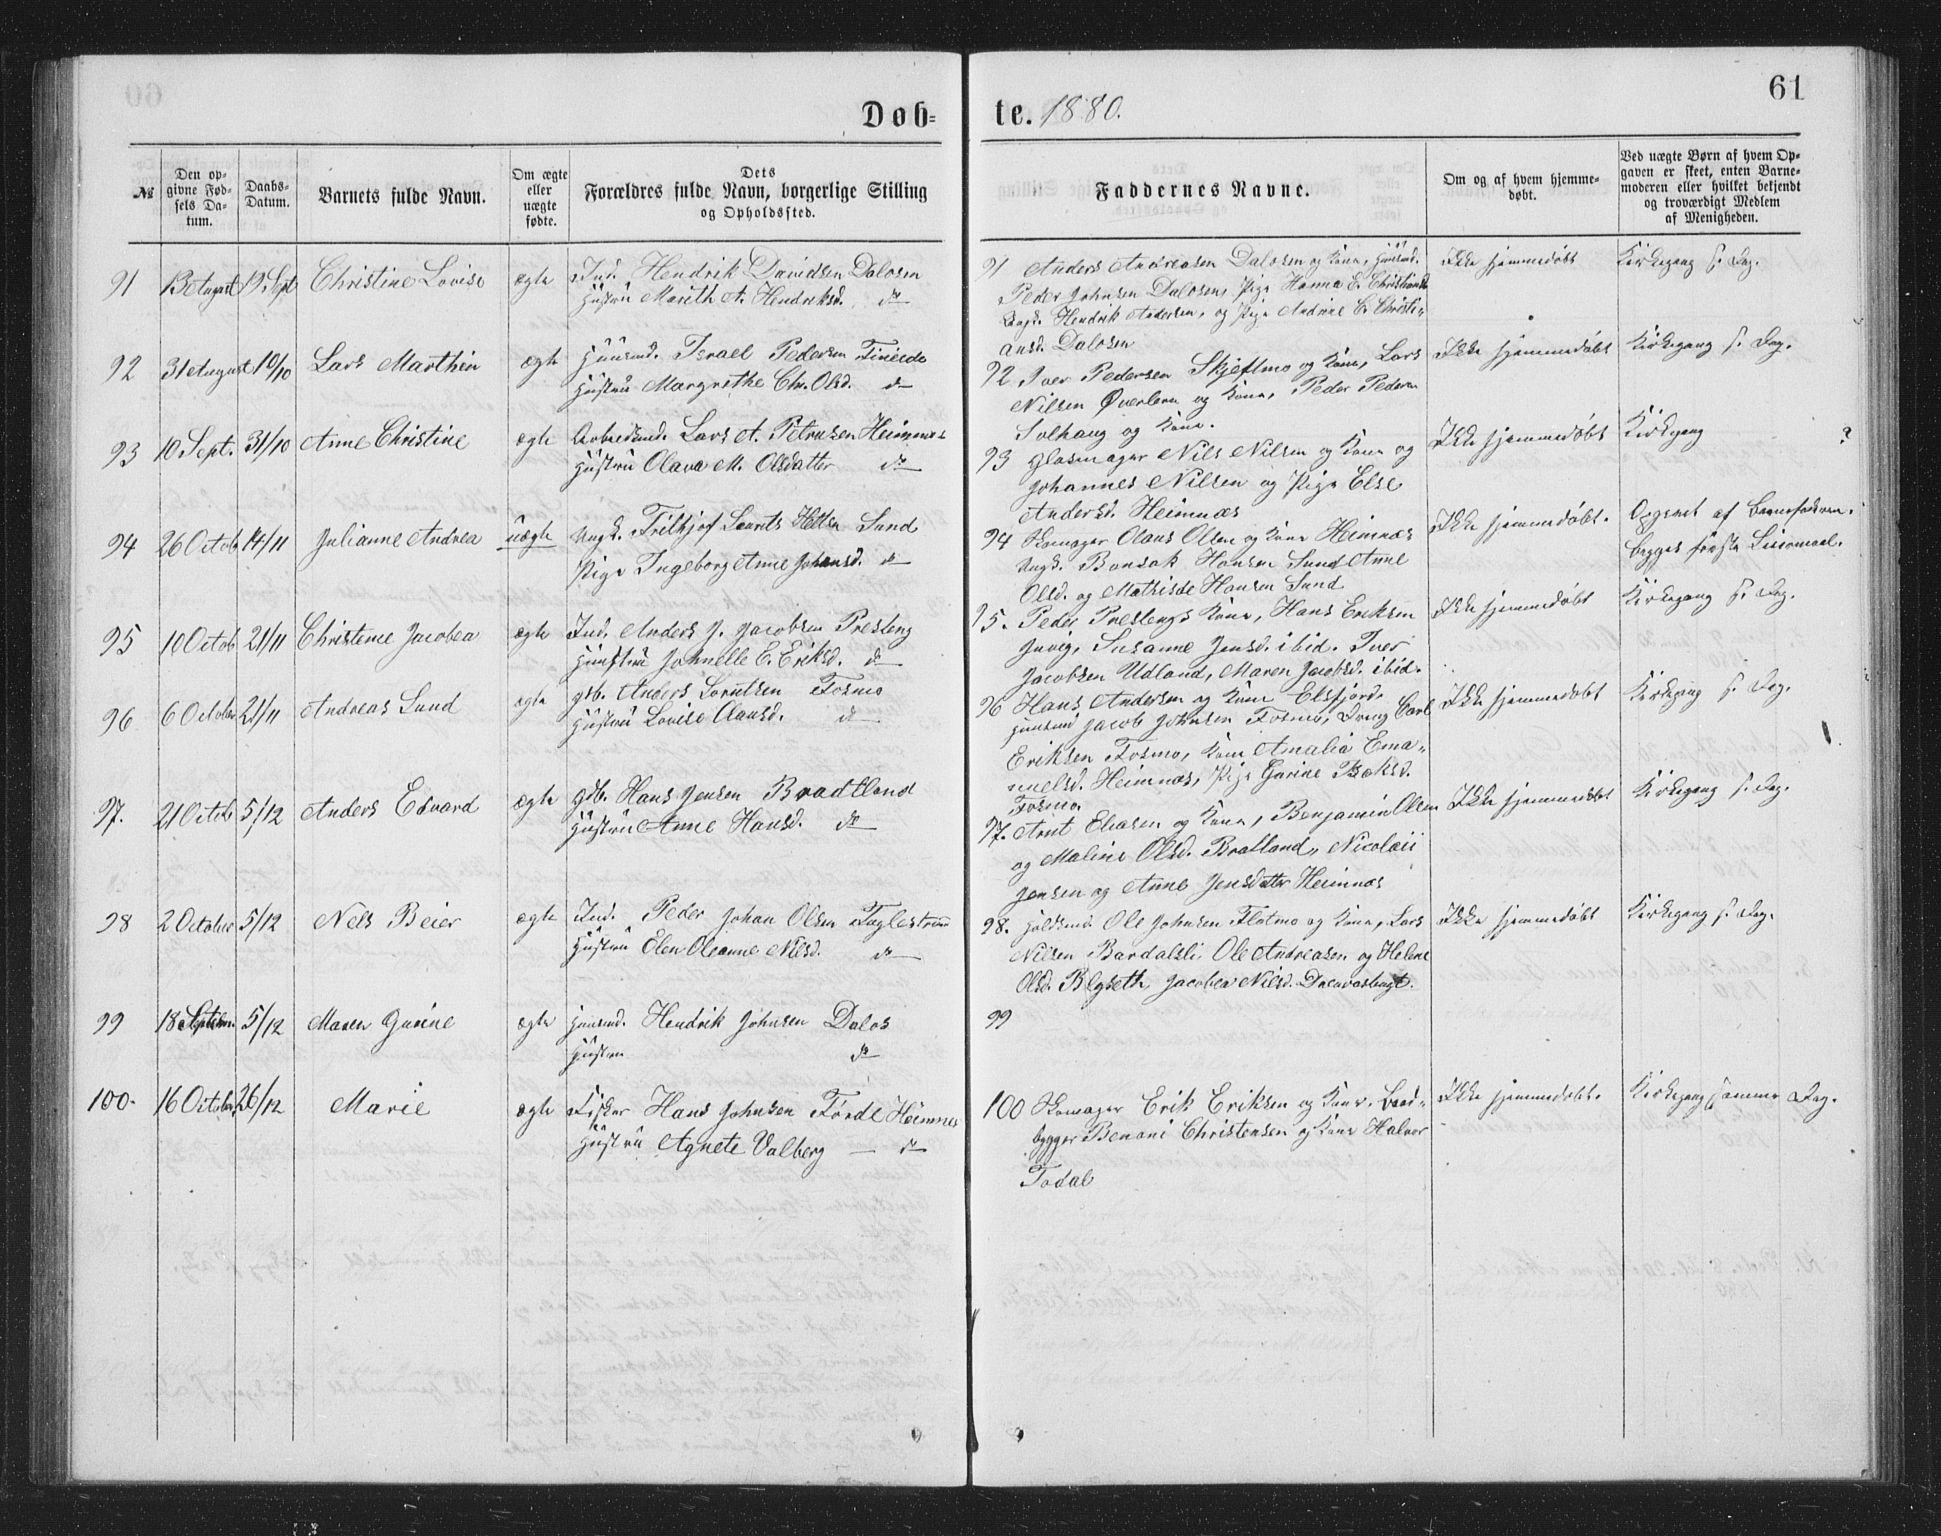 61
Døb- te. 1880.
№
Den opgivne Fødsels Datum.
Daabs-Datum.
Barnets fulde Navn.
Om ægte eller uægte fødte.
Dets Forældres fulde Navn, borgerlige Stilling og Opholdssted.
Faddernes Navne.
Om og af hvem hjemmedøbt.
Ved uægte Børn af hvem Opgaven er skeet, enten Barnemoderen eller hvilket bekjendt og troværdigt Medlem af Menigheden.
91 13 August 19 Sept Christine Lovise ægte Ind. Hendrik Davidsen Dalosen
Hustru Marith A. Hendriksd. do
91 Anders Andreasen Dalosen og Kone, Huusmd.
Peder Johnsen Dalosen, Pige Hanna E. Christiansd.
Ungk. Hendrik Andersen, og Pige Andrine C. Christi-
ansd. Dalosen
Ikke hjemmedøbt Kirkegang s. Dag.
92 31 August 10/10 Lars Marthin ægte Huusmd. Israel Pedersen
Hustru Margrethe Chr. Olsd. do
92 Iver Pedersen Skjeflmo og Kone, Lars
Nilsen Øverleren og Kone, Peder Pedersen
Solhaug og Kone.
Ikke hjemmedøbt Kirkegang s. Dag.
93 10 Sept. 31/10 Anne Christine ægte Arbeidsmd. Lars A. Petersen Heimnæs
Hustru Olava M. Olsdatter do
93 Glasmager Nils Nilsen og Kone og
Johannes Nilsen og Pige Else
Andersd. Heimnæs
Ikke hjemmedøbt Kirkegang ?
94 26 Octob 14/11 Julianne Andrea uægte Ungk. Frithjof Laurits Hetten Sund
Pige Ingeborg Anne Johansd. do
94 Skomager Olaus Olsen og Kone Heimnæs
Ungk. Bonsak Hansen Sund Anne
Olsd. og Mathilde Hansen Sund
Ikke hjemmedøbt. Opgivet af Barnefaderen.
begges første Leiermaal.
95 10 Octob 21/11 Christine Jacobea ægte Ind. Anders J. Jacobsen Presteng
Hustru Johnelle E. Eriksd. do
95. Peder Prestengs Kone, Hans Eriksen
Juvig, Susanne Jensd. ibid. Iver
Jacobsen Udland, Maren Jacobsd. ibid.
Ikke hjemmedøbt Kirkegang s. Dag.
96 6 October 21/11 Andreas Lund ægte Gdb. Anders Lorntsen Fosmo
Hustru Lovise Clausd. do
96 Hans Andersen og Kone Elsfjord.
Huusmd Jacob Johnsen Fosmo, Dreng Carl
Eriksen Fosmo, Kone Amalia Ema-
nuelsd. Heimnæs, Pige Gurine Baksd.
Fosmo
Ikke hjemmedøbt Kirkegang s. Dag.
97. 21 Octob 5/12 Anders Edvard ægte Gdb. Hans Jensen Bradtland
Hustru Anne Hansd. do
97. Arnt Eliasen og Kone, Benjamin Olsen
og Maline Olsd. Bratland, Nicolaii
Jensen og Anne Jensdatter Heimnæs
Ikke hjemmedøbt Kirkegang s. Dag.
98 2 October 5/12 Nels Beier ægte Ind. Peder Johan Olsen Fuglestrand
Hustru Elen Oleanne Nilsd. do
98. Ole Johnsen Flotmo og Kone, Lars
Nilsen Bardalsli Ole Andreasen og Helene
Olsd. Blyseth, Jacobea Nilsd.
Ikke hjemmedøbt Kirkegang s. Dag.
99 18 Septem. 5/12 Maren Gurine ægte Huusmd. Hendrik Johnsen Dalos
Hustru do
99
100. 16 October 26/12 Marie ægte Fisker Hans Johnsen Førde Heimnes
Hustru Agnete Valberg — do
100 Skomager Erik Eriksen og Kone, Baad-
bygger Benoni Christensen og Kone Halvor
Todal
Ikke hjemmedøbt. Kirkegang samme Dag.